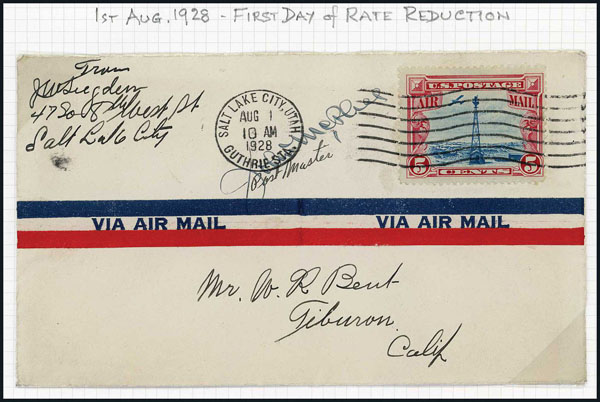 1ST AUG. 1928 - FIRST DAY of RATE REDUCTION
From
Salt Lake City
SALT LAKE CITY, UTAH
AUG 1
10 AM
1928
GUTHRIE STA.
Post Master
U.S. POSTAGE
AIR MAIL
5 5
CENTS
VIA AIR MAIL VIA AIR MAIL
Mr. W. R. Bent
Tiburon
Calif